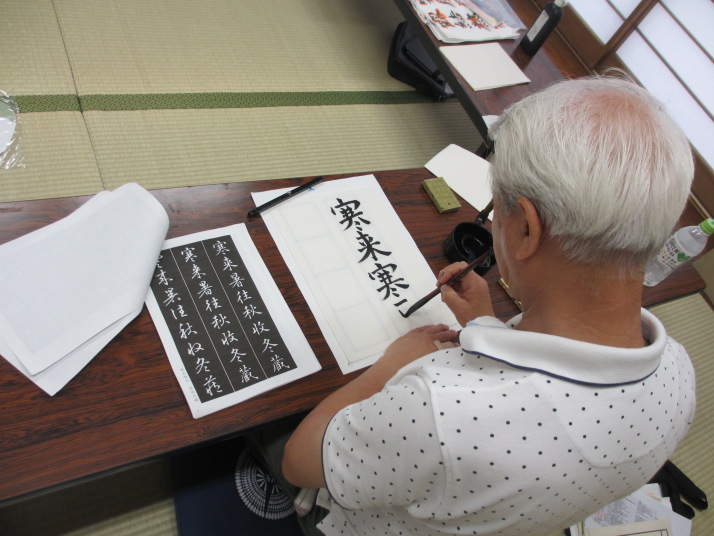 寒来寒
寒来暑往秋收冬蔵
寒来暑往秋收冬蔵
寒来暑往秋收冬蔵